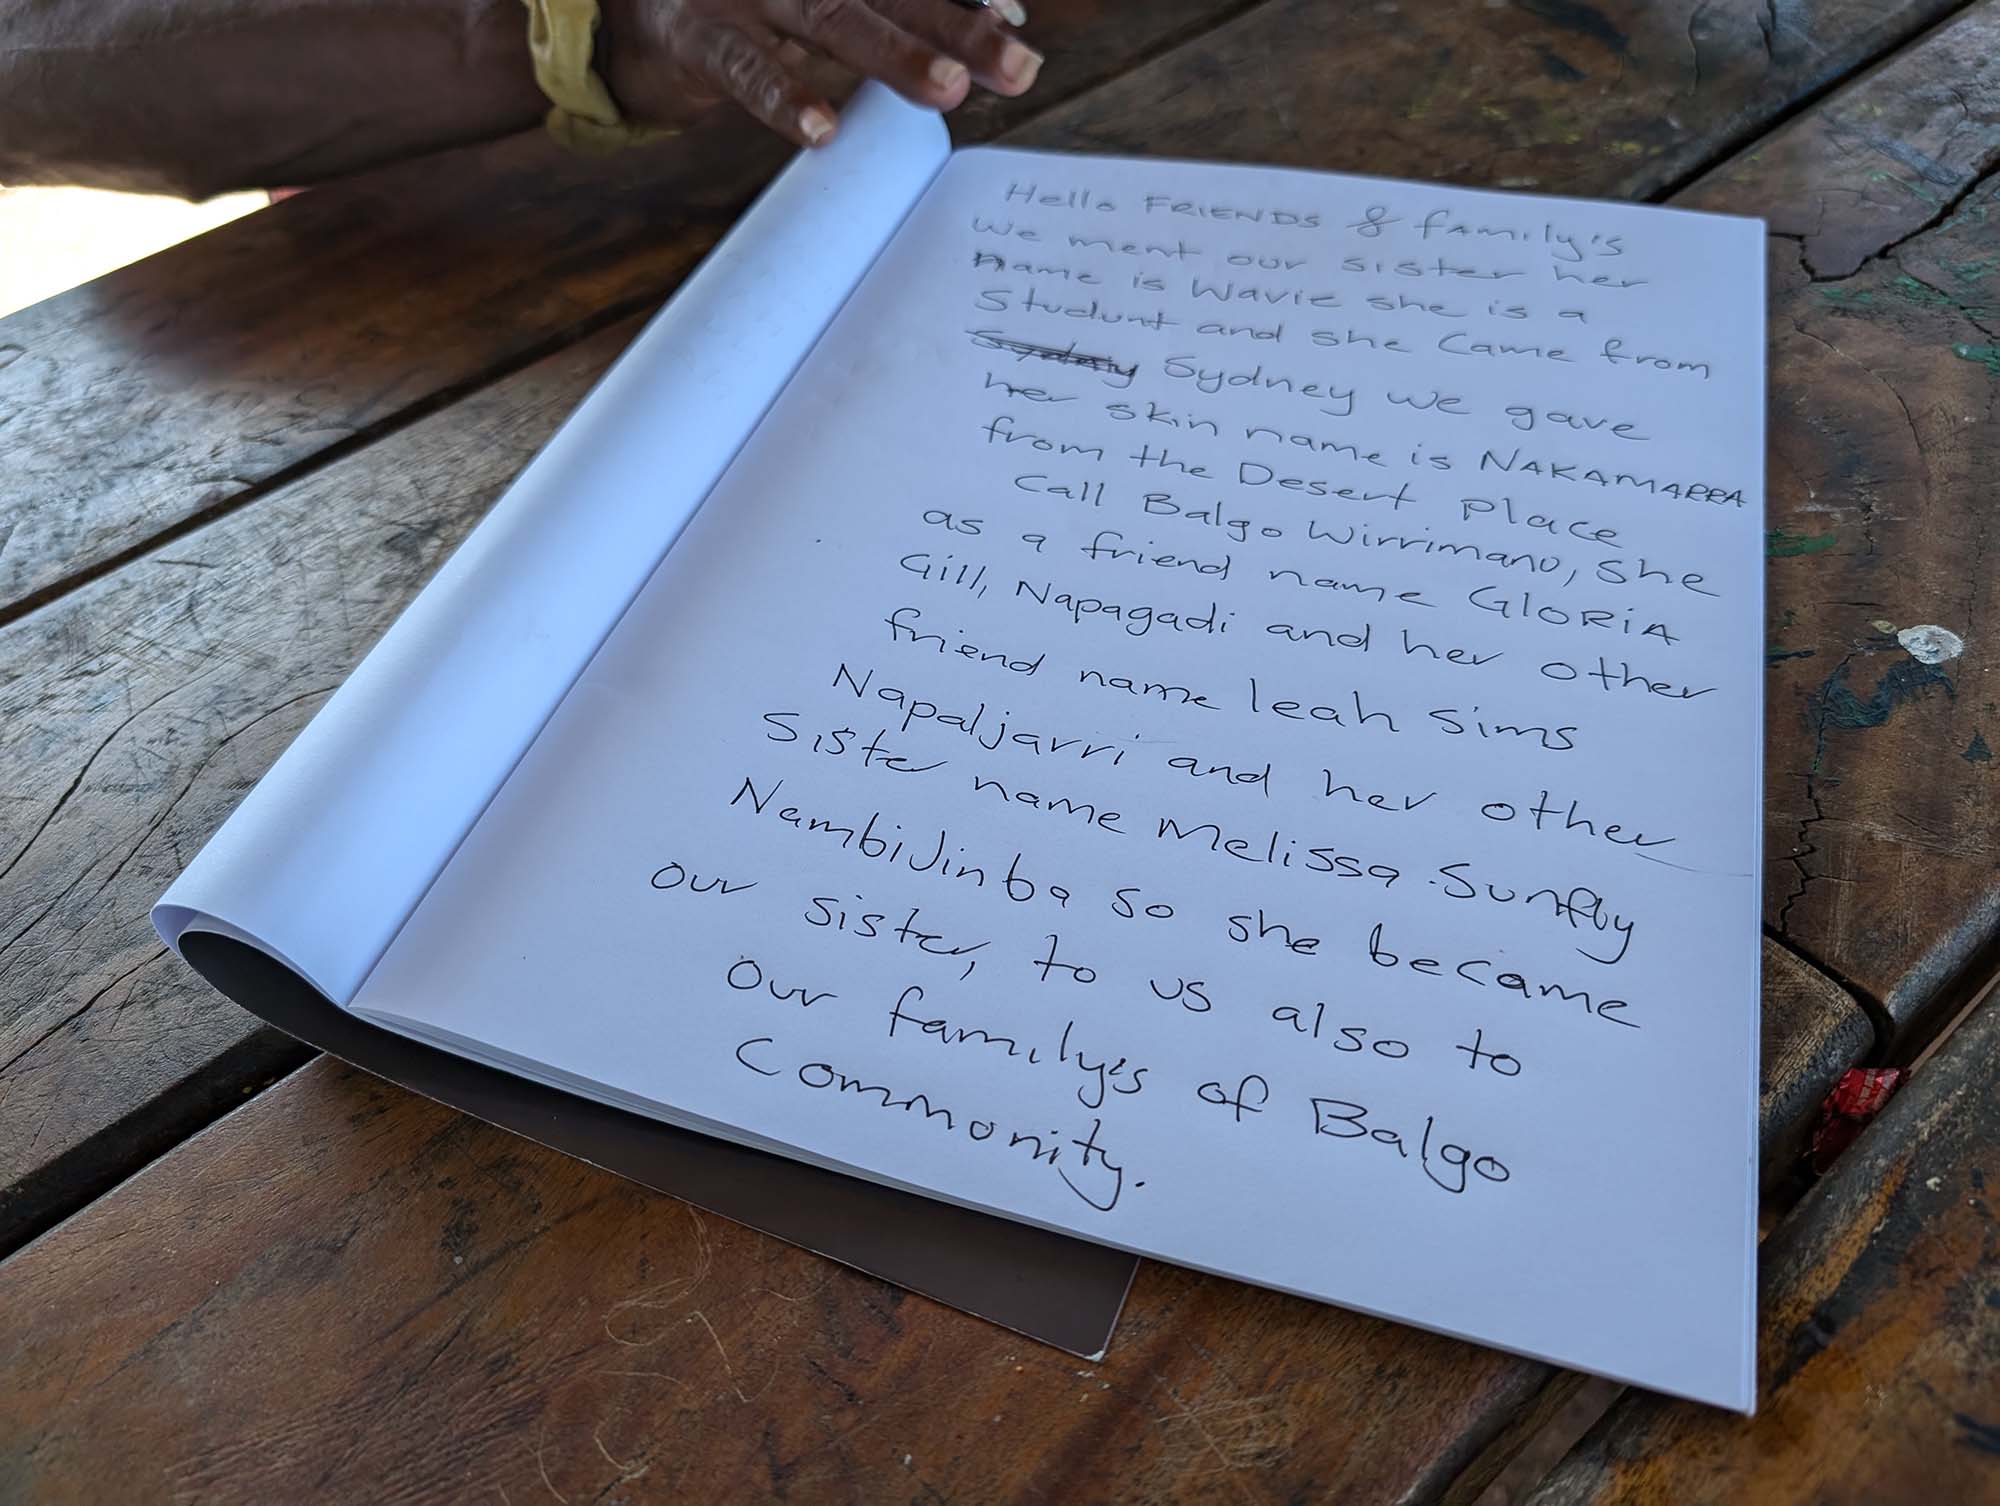 Hello FRIENDS & family's
We ment our sister her
name is Wavie she is a
Studunt and she Came from
Sydney we gave
her skin name is NAKAMARRA
from the Desert Place
Call Balgo Wirrimano, she
as a friend name GLORiA
Gill, Napagadi and her other
friend name leah Sims
Napaljarri and her other
Sister name Melissa Sunfly
NambiJinba so she became
our sister, to us also to
Our family's of Balgo
Commonity.